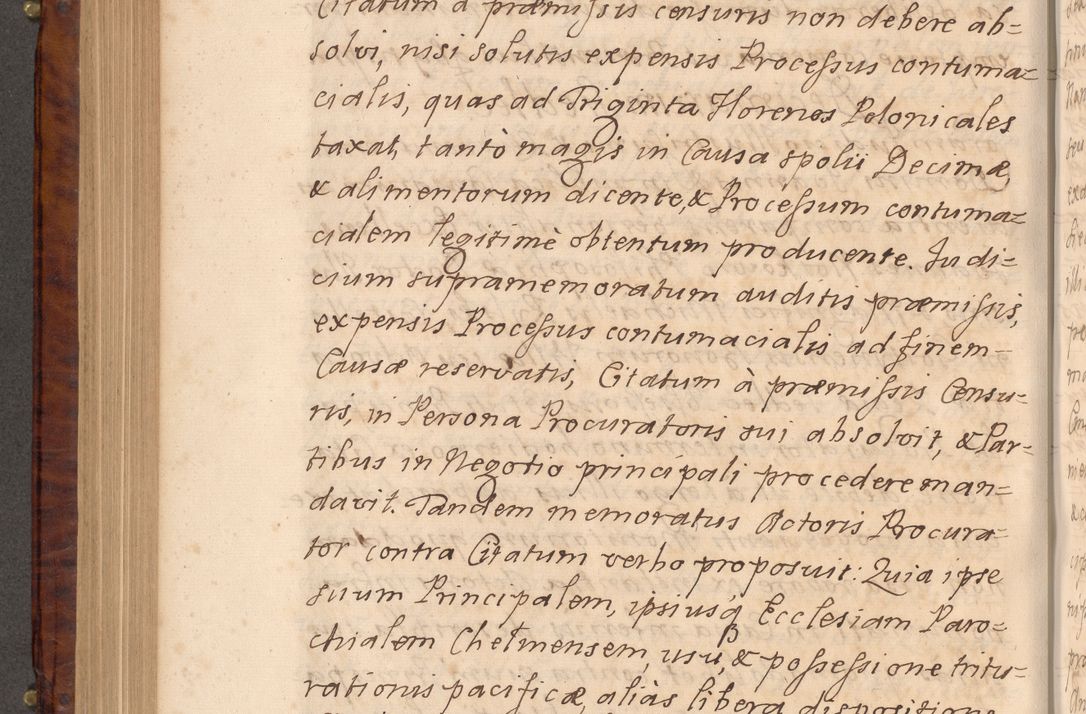 Citatum à præmissis censuris non debere ab=
solvi, nisi solutis expensis Processus contuma=
cialis, quas ad Triginta Florenos Polonicales
taxat, tantò magis in Causa spolii Decimæ,
& alimentorum dicente, & Processum contuma=
cialem legitimè obtentum producente. Judi=
cium supramemoratum auditis præmissis,
expensis Processus contumacialis ad finem
Causæ reservatis, Citatum à præmissis Censu=
ris, in Persona Procuratoris sui absolvit, & Par=
tibus in Negotio principali procedere man=
davit. Tandem memoratus Actoris Procura=
tor contra Citatum verbo proposuit: Quia ipse
suum Principalem, ipsiusq Ecclesiam Paro=
chialem Chełmensem, usu, & possessione tritu=
rationis pacificæ, aliàs libera dispositione